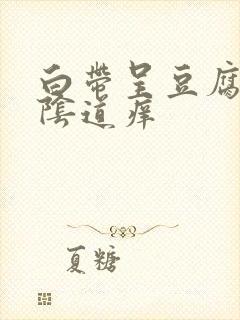 白带呈豆腐
陰道痒
夏糖